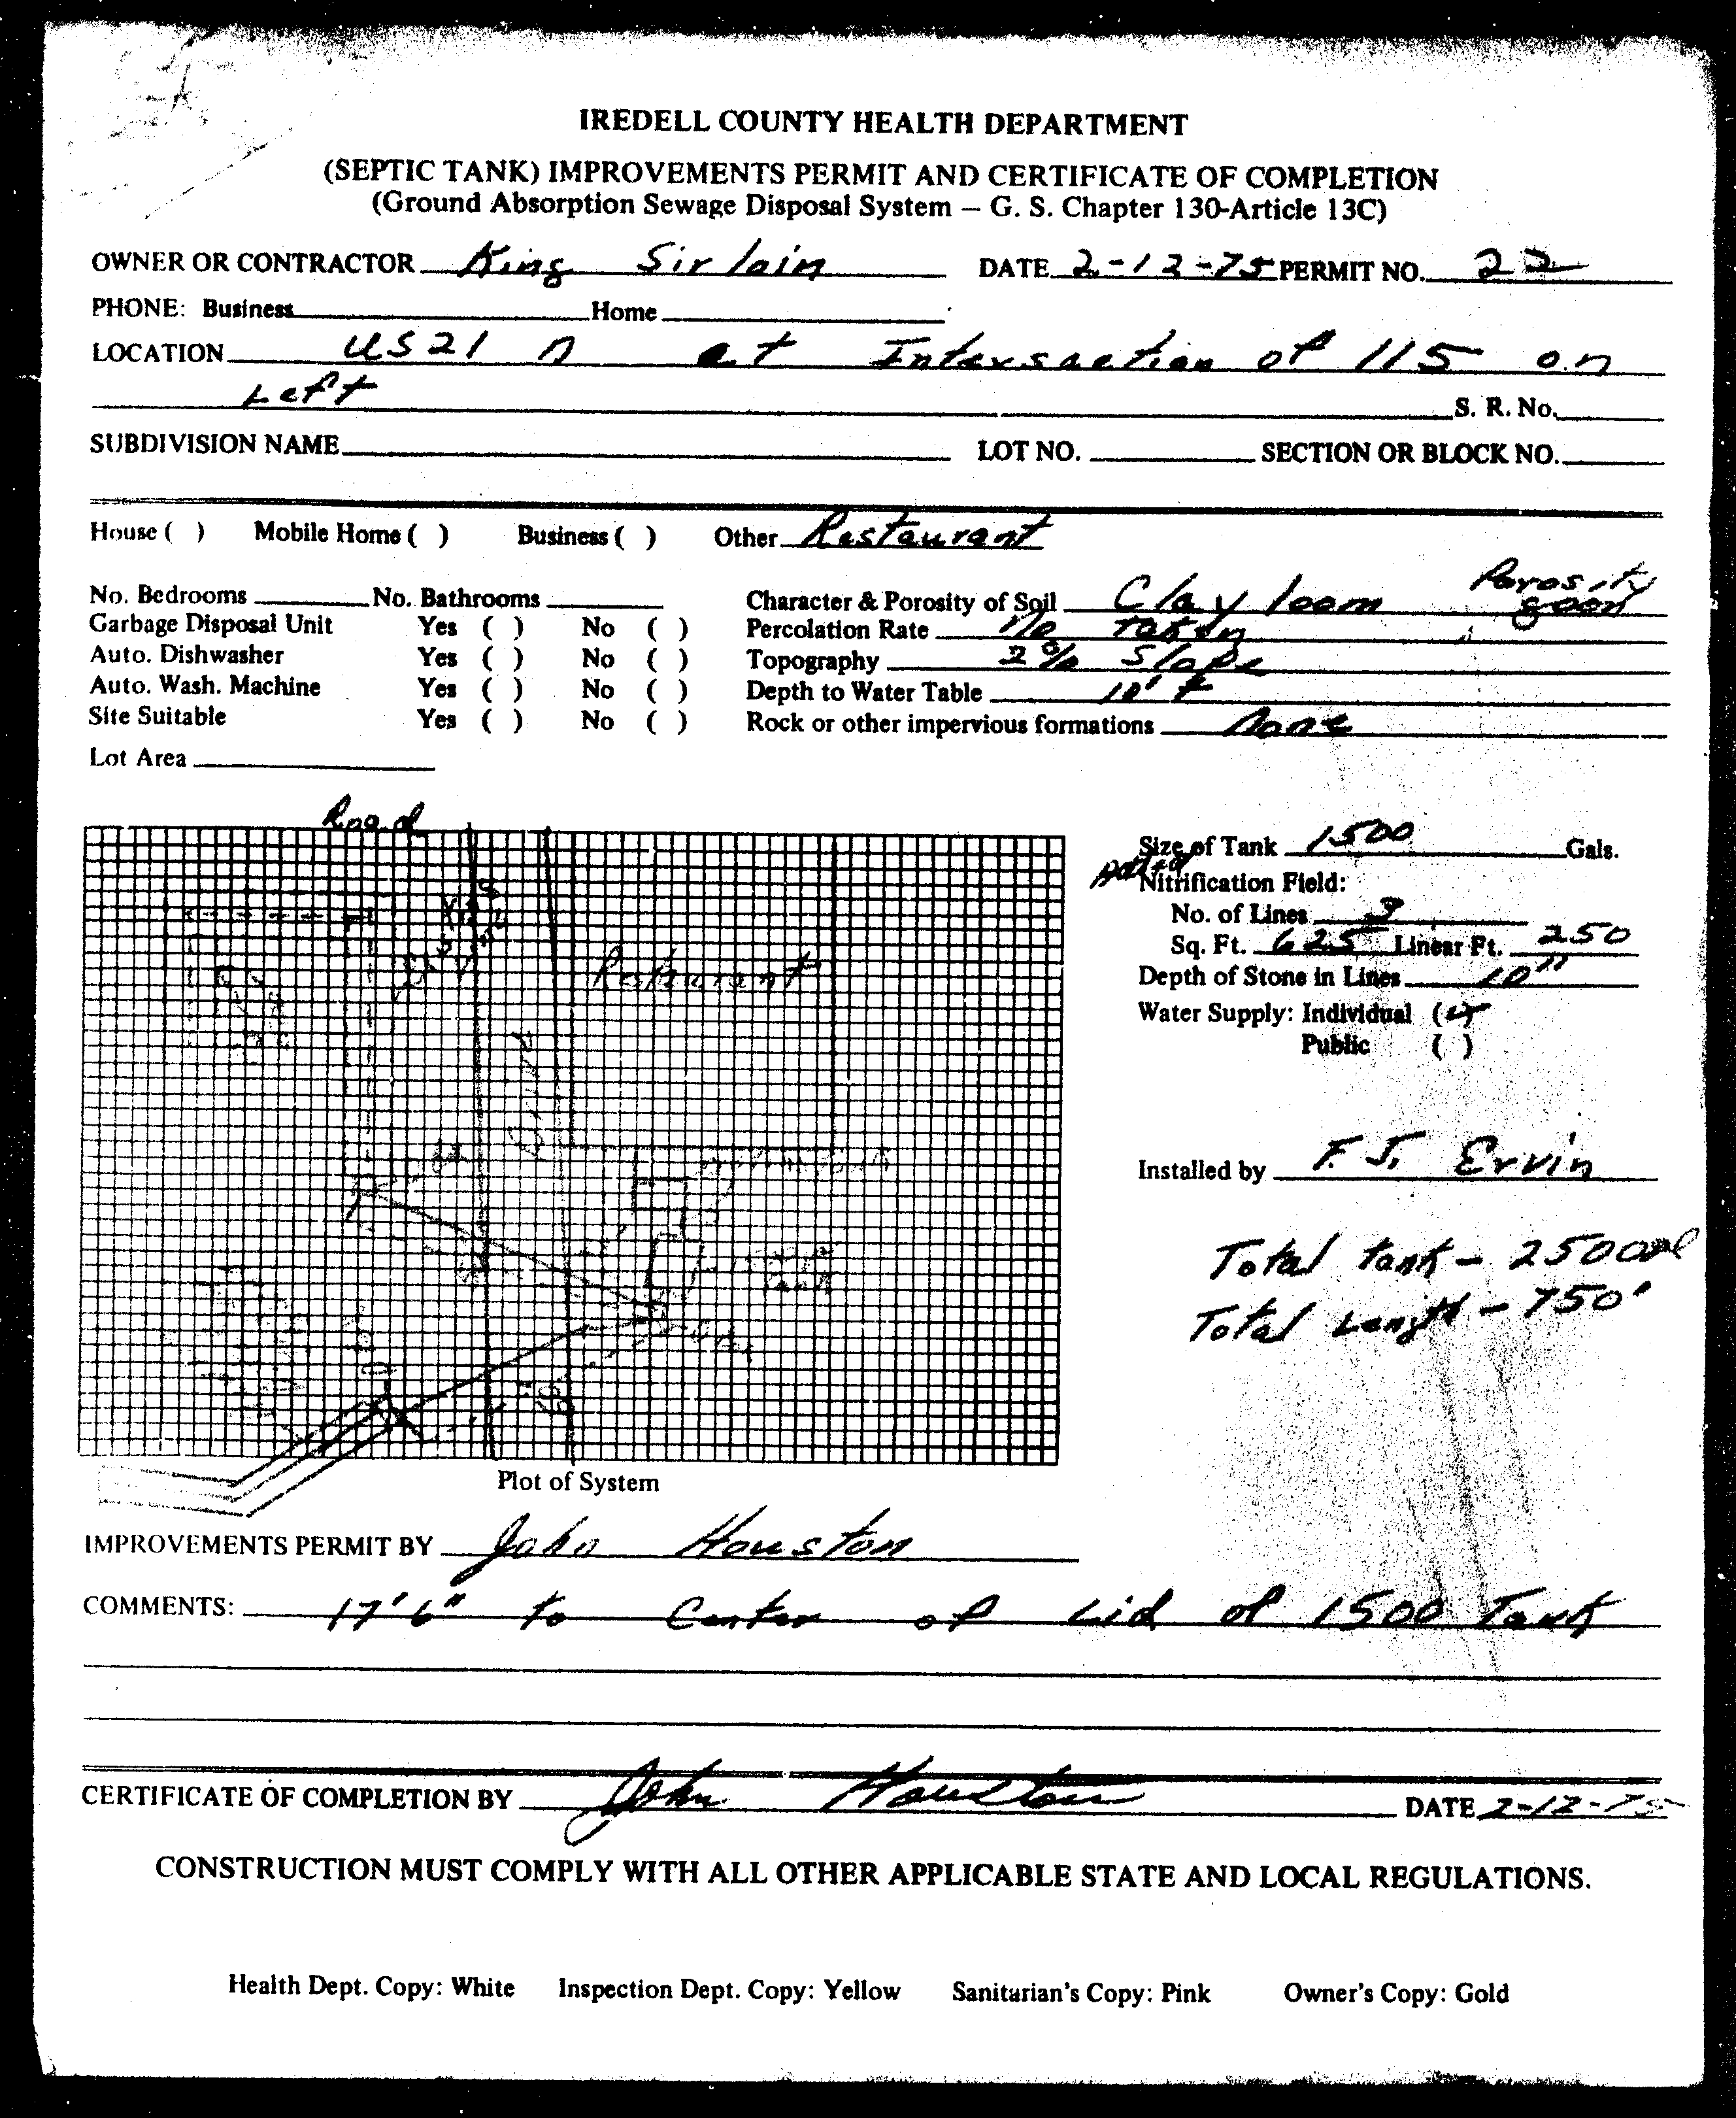 IREDELL COUNTY HEALTH DEPARTMENT
(SEPTIC TANK) IMPROVEMENTS PERMIT AND CERTIFICATE OF COMPLETION
(Ground Absorption Sewage Disposal System – G. S. Chapter 130-Article 13C)
OWNER OR CONTRACTOR King Sirloin DATE 2-12-75 PERMIT NO. 22
PHONE: Business Home
LOCATION US21 N at Intersection of 115 on
Left S. R. No.
SUBDIVISION NAME LOT NO. SECTION OR BLOCK NO.
House ( ) Mobile Home ( ) Business ( ) Other Restaurant
No. Bedrooms No. Bathrooms Character & Porosity of Soil Clay loam Porosity good
Garbage Disposal Unit Yes ( ) No ( ) Percolation Rate No taken
Auto. Dishwasher Yes ( ) No ( ) Topography 2% Slope
Auto. Wash. Machine Yes ( ) No ( ) Depth to Water Table 10' +
Site Suitable Yes ( ) No ( ) Rock or other impervious formations None
Lot Area
Road
Size of Tank 1500 Gals.
Added
Nitrification Field:
No. of Lines 3
Sq. Ft. 625 Linear Ft. 250
Restaurant
Depth of Stone in Lines 10"
Water Supply: Individual (✓)
Public ( )
Installed by F. J. Ervin
Total tank - 2500
Total Length - 750'
Plot of System
IMPROVEMENTS PERMIT BY John Houston
COMMENTS: 17'6" to Center of Lid of 1500 Tank
CERTIFICATE OF COMPLETION BY John Houston DATE 2-12-75
CONSTRUCTION MUST COMPLY WITH ALL OTHER APPLICABLE STATE AND LOCAL REGULATIONS.
Health Dept. Copy: White Inspection Dept. Copy: Yellow Sanitarian's Copy: Pink Owner's Copy: Gold